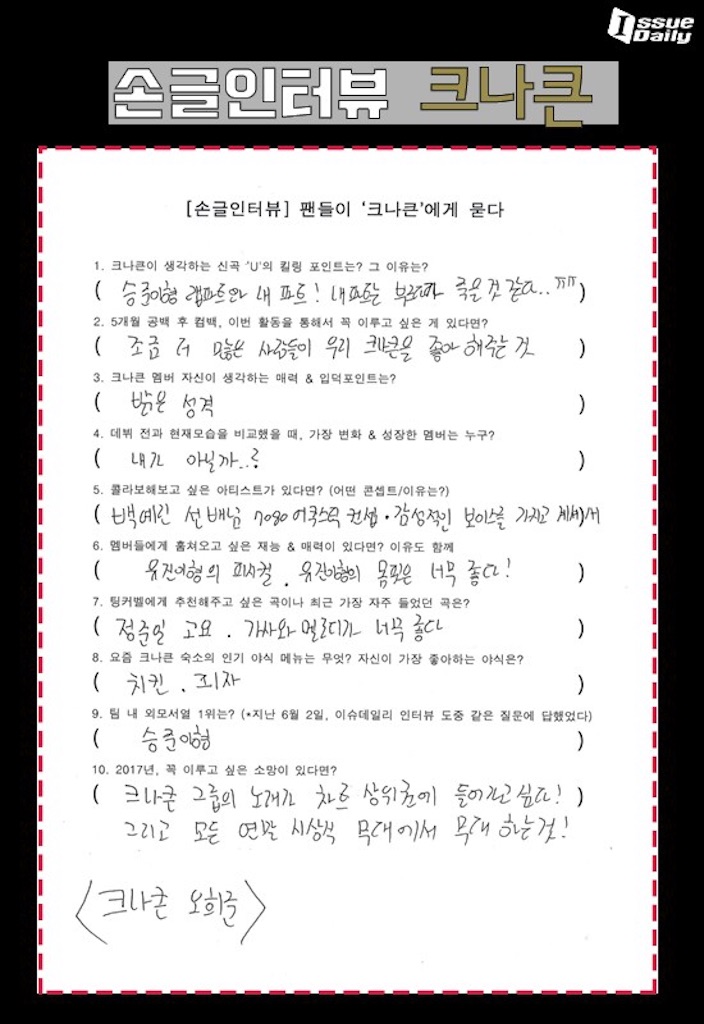 Issue
Daily
손글인터뷰 크나큰
[손글인터뷰] 팬들이 '크나큰'에게 묻다
1. 크나큰이 생각하는 신곡 'U'의 킬링 포인트는? 그 이유는?
( 승준이형 랩파트와 내 파트! 내파트는 부르다가 죽을것 같다..ㅠㅠ )
2. 5개월 공백 후 컴백, 이번 활동을 통해서 꼭 이루고 싶은 게 있다면?
( 조금 더 많은 사람들이 우리 크나큰을 좋아 해주는 것 )
3. 크나큰 멤버 자신이 생각하는 매력 & 입덕포인트는?
( 밝은 성격 )
4. 데뷔 전과 현재모습을 비교했을 때, 가장 변화 & 성장한 멤버는 누구?
( 내가 아닐까..? )
5. 콜라보해보고 싶은 아티스트가 있다면? (어떤 콘셉트/이유는?)
( 백예린 선배님 7080 어쿠스틱 컨셉 · 감성적인 보이스를 가지고 계셔서 )
6. 멤버들에게 훔쳐오고 싶은 재능 & 매력이 있다면? 이유도 함께
( 유진이형의 피지컬 . 유진이형의 몸핏은 너무 좋다! )
7. 팅커벨에게 추천해주고 싶은 곡이나 최근 가장 자주 들었던 곡은?
( 정준일 고요 . 가사와 멜로디가 너무 좋다 )
8. 요즘 크나큰 숙소의 인기 야식 메뉴는 무엇? 자신이 가장 좋아하는 야식은?
( 치킨 . 피자 )
9. 팀 내 외모서열 1위는? (*지난 6월 2일, 이슈데일리 인터뷰 도중 같은 질문에 답했었다)
( 승준이형 )
10. 2017년, 꼭 이루고 싶은 소망이 있다면?
( 크나큰 그룹의 노래가 차트 상위권에 들어가고 싶다! )
그리고 모든 연말 시상식 무대에서 무대 하는것!
<크나큰 오희준>